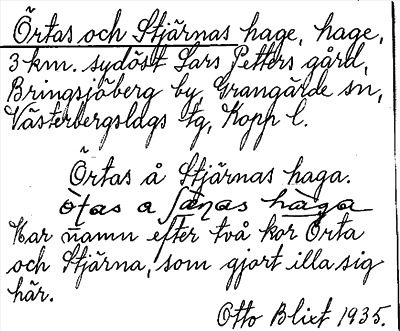 Örtas och Stjärnas hage, hage,
3 km. sydöst Lars Petters gård,
Bringsjöberg by, Grangärde sn,
Västerbergslags tg, Kopp l.
Örtas å Stjärnas haga.
Har namn efter två kor Örta
och Stjärna, som gjort illa sig
här.
Otto Blixt 1935.